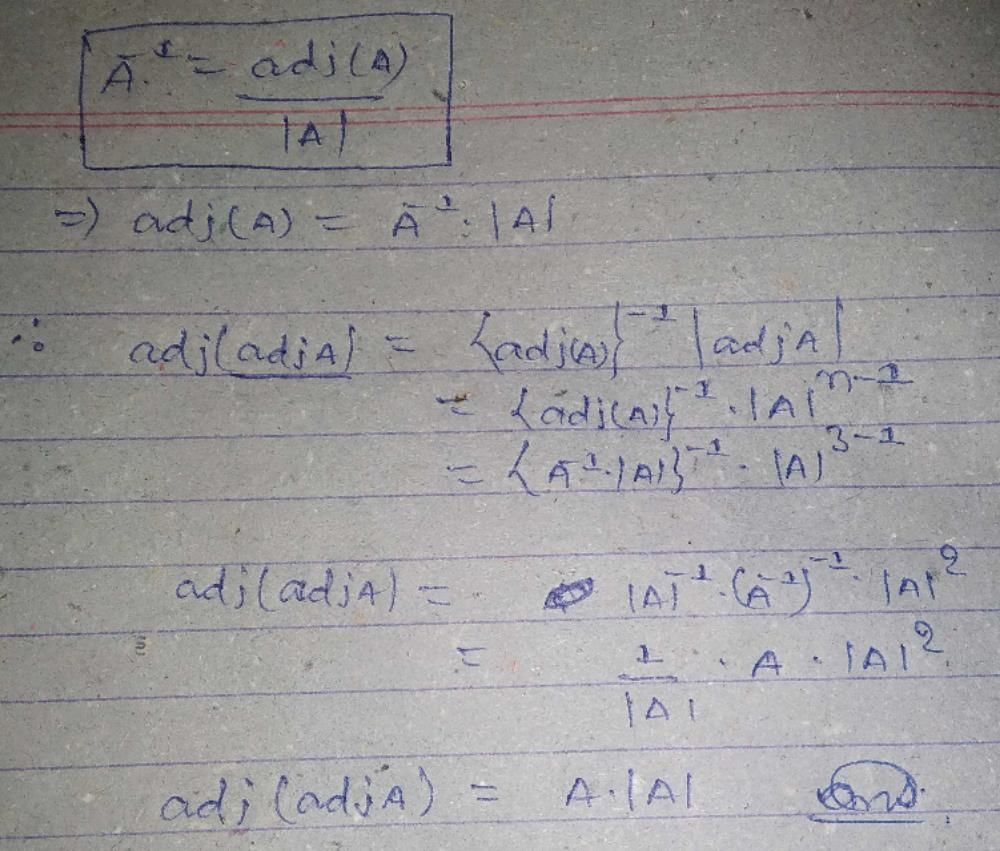 A⁻¹ = adj(A)
|A|
=) adj(A) = A⁻¹. |A|
∴ adj(adjA) = {adj(A)}⁻¹ |adjA|
= {adj(A)}⁻¹ . |A|ⁿ⁻¹
= {A⁻¹.|A|}⁻¹ . |A|³⁻¹
adj(adjA) = |A|⁻¹ . (A⁻¹)⁻¹ . |A|²
= 1 . A . |A|²
|A|
adj(adjA) = A.|A| Ans.